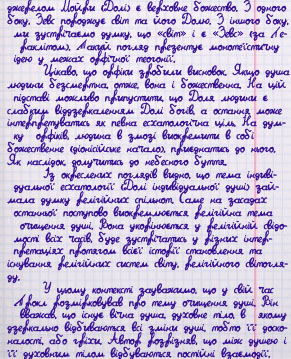 джерелом Мойри (Долі) є верховне божество. З одного
боку, Зевс породжує світ та його Долю. З іншого боку,
ми зустрічаємо думку, що «світ» і є «Зевс» (за Ге-
раклітом). Такий погляд презентує монотеїстичну
ідею у межах орфічної теогонії.
Цікаво, що орфіки зробили висновок. Якщо душа
людини безсмертна, отже, вона і божественна. На цій
підставі можливо припустити, що Доля людини є
слабким віддзеркаленням Долі богів, а остання може
інтерпретуватись як певна есхатологічна ціль. На дум-
ку орфіків, людина в змозі виокремити в собі
божественне (діонісійське начало), приєднатись до нього,
Як наслідок, долучитись до небесного буття.
Із окреслених поглядів видно, що тема індиві-
дуальної есхатології (Долі індивідуальної душі) зай-
мала думку релігійних спільнот. Саме на засадах
останньої поступово виокремлюється релігійна тема
очищення душі. Вона укорінюється у релігійній відо-
мості всіх часів, буде зустрічатись у різних інтер-
претаціях протягом всієї історії становлення та
існування релігійних систем світу, релігійного світогля-
ду.
У цьому контексті зауважимо, що у свій час
Прокл розмірковував про тему очищення душі. Він
вважав, що існує вічна душа, духовне тіло, в якому
дзеркально відбиваються всі зміни душі, тобто її доско-
налості, або гріхи. Автор розрізняв, що між душею і
її духовним тілом відбуваються постійні взаємодії,